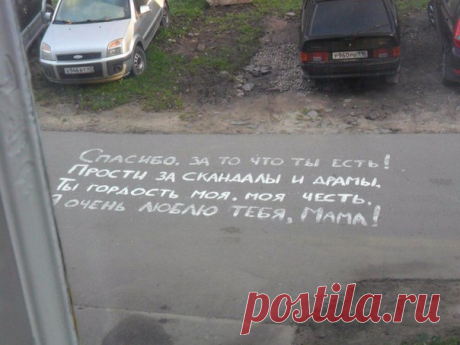 Спасибо, за то что ты есть!
Прости за скандалы и драмы.
Ты гордость моя, моя честь.
Я очень люблю тебя, Мама!
postila.ru